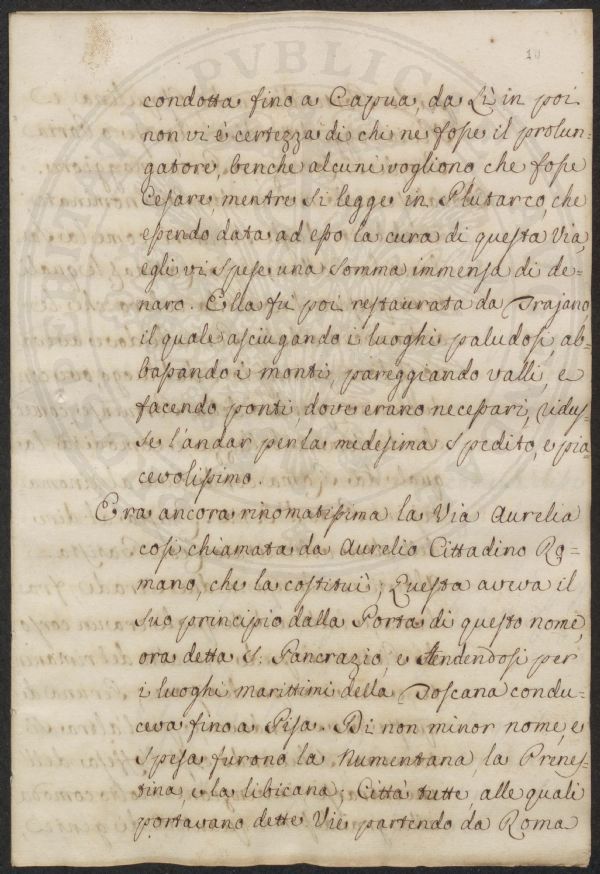 10
condotta fino a Capua, da Lì in poi
non vi è certezza di chi ne fosse il prolun=
gatore, benche alcuni vogliono che fosse
Cesare, mentre si legge in Plutarco, che
essendo data ad esso la cura di questa Via,
egli vi spese una somma immensa di de=
naro. Ella fù poi restaurata da Trajano
il quale asciugando i luoghi paludosi, ab=
bassando i monti, pareggiando valli, e
facendo ponti, dove erano necessari, ridus=
se l'andar per la medesima spedito, e pia
cevolissimo.
Era ancora rinomatissima la Via Aurelia
così chiamata da Aurelio Cittadino Ro=
mano, che la costituì; Questa aveva il
suo principio dalla Porta di questo nome,
ora detta S. Pancrazio, e stendendosi per
i luoghi marittimi della Toscana condu=
ceva fino a Pisa. Di non minor nome, e
spesa furono la Numentana, la Prenes=
tina, e la libicana; Città tutte, alle quali
portavano dette Vie partendo da Roma